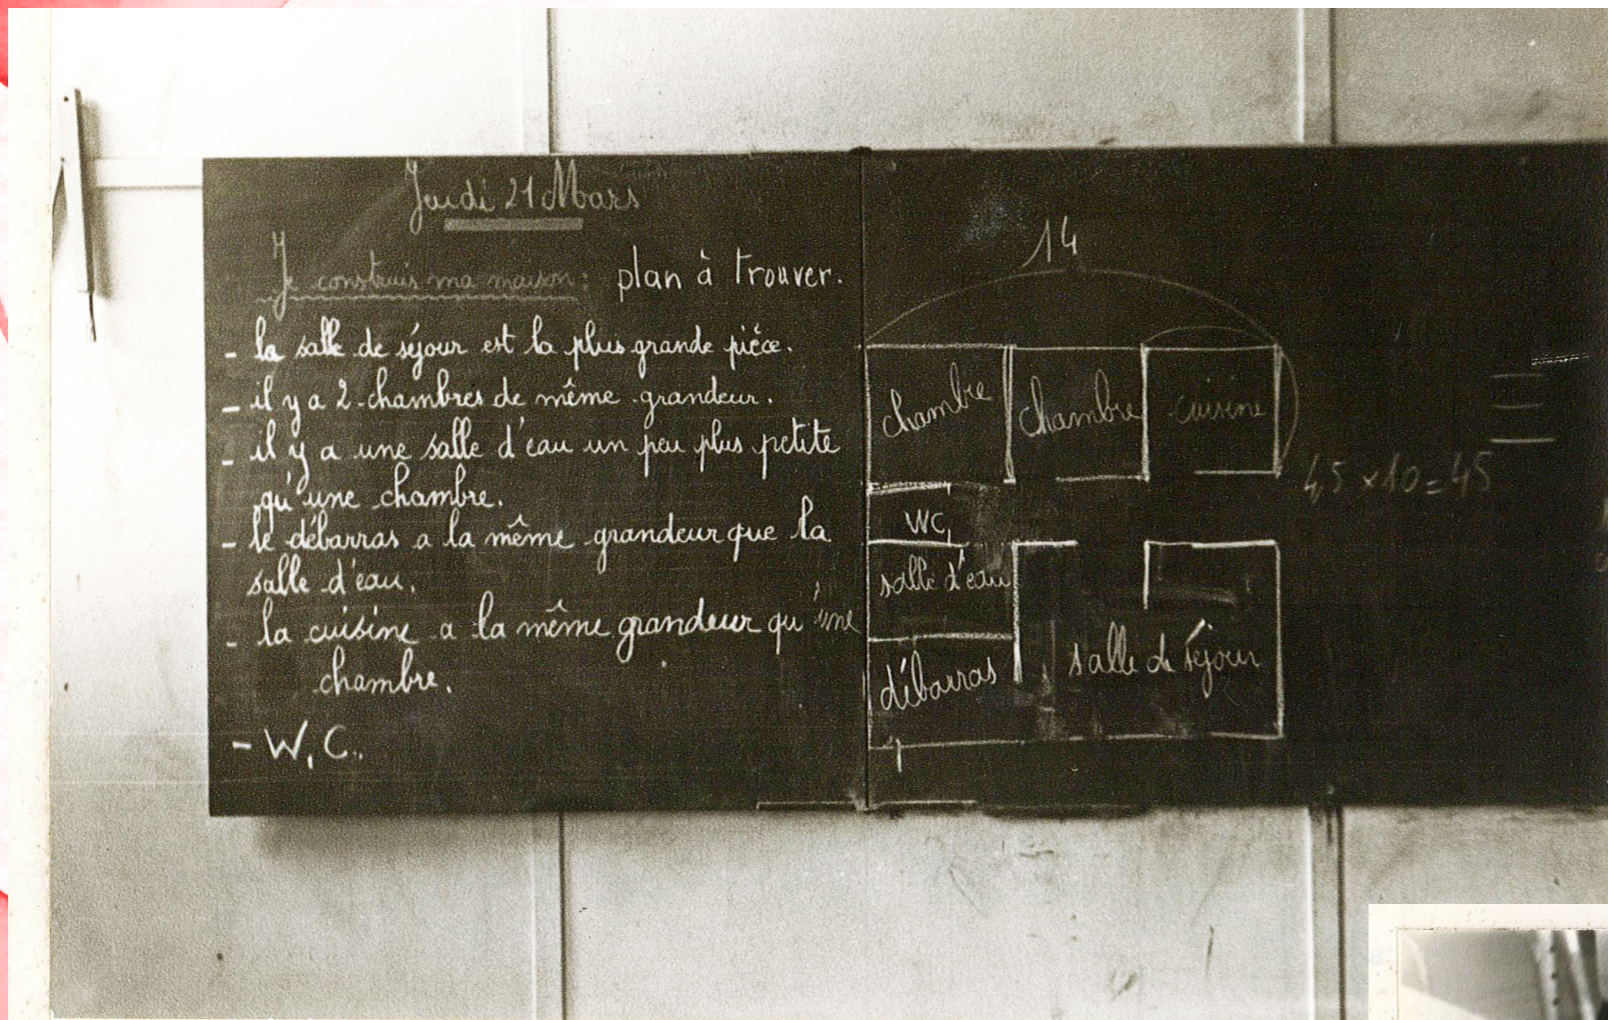 Jeudi 21 Mars
Je construis ma maison : plan à trouver.
- la salle de séjour est la plus grande pièce.
- il y a 2 chambres de même grandeur.
- il y a une salle d'eau un peu plus petite
qu'une chambre.
- le débarras a la même grandeur que la
salle d'eau.
- la cuisine a la même grandeur qu'une
chambre.
- W.C.
14
chambre
chambre
cuisine
4,5 x 10 = 45
WC
salle d'eau
débarras
salle de séjour